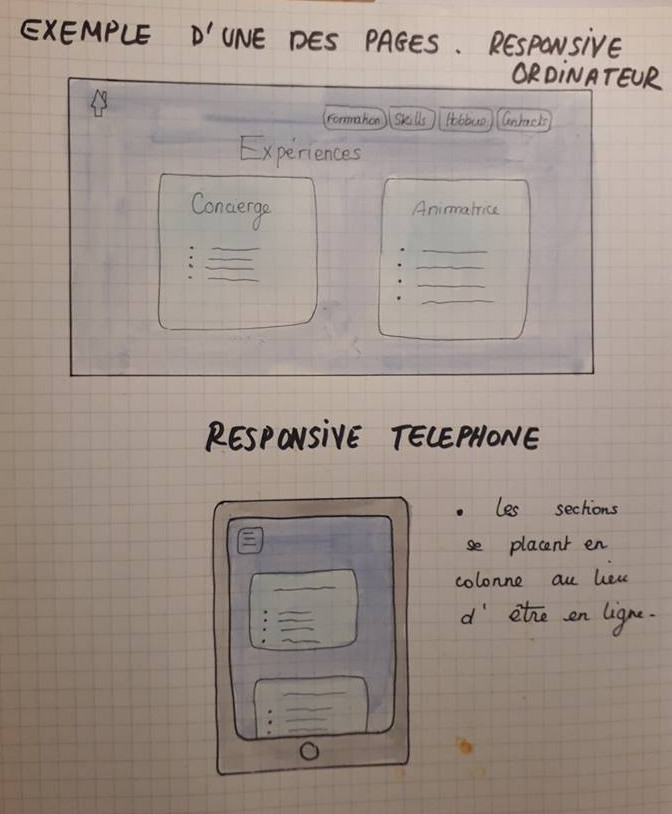 EXEMPLE D'UNE DES PAGES. RESPONSIVE
ORDINATEUR
Formation Skills Hobbies Contacts
Expériences
Concierge
Animatrice
RESPONSIVE TELEPHONE
• les sections
se placent en
colonne au lieu
d'être en ligne.